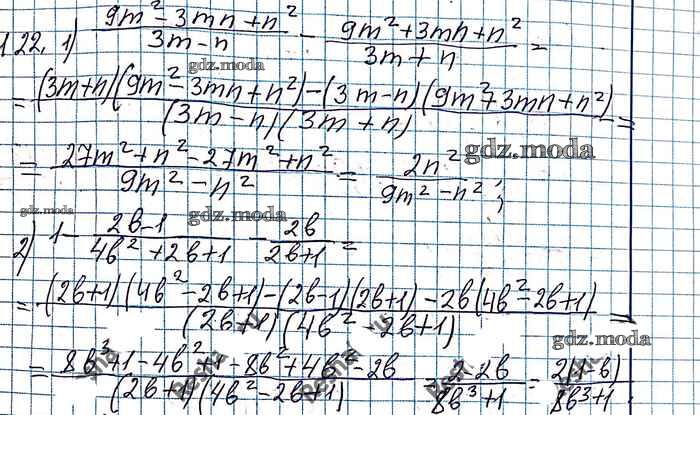 1.22. 1) (9m² - 3mn + n²)/(3m - n) - (9m² + 3mn + n²)/(3m + n) =
gdz.moda
= ((3m+n)(9m² - 3mn + n²) - (3m - n)(9m² + 3mn + n²))/((3m - n)(3m + n)) =
gdz.moda
= (27m² + n² - 27m² + n²)/(9m² - n²) = 2n²/(9m² - n²);
gdz.moda gdz.moda
2) 1 - (2b-1)/(4b² + 2b + 1) - 2b/(2b+1) =
= ((2b+1)(4b² - 2b + 1) - (2b-1)(2b+1) - 2b(4b² - 2b + 1))/((2b+1)(4b² - 2b + 1)) =
gdz.moda
= (8b³ + 1 - 4b² + 1 - 8b² + 4b² - 2b)/((2b+1)(4b² - 2b + 1)) = (2 - 2b)/(8b³ + 1) = 2(1 - b)/(8b³ + 1);